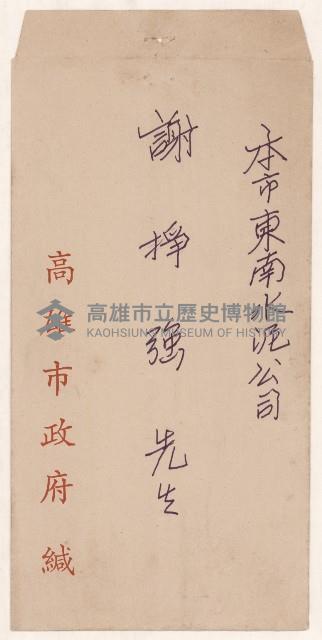 本市東南水泥公司
謝掙強先生
高雄市政府緘
高雄市立歷史博物館
KAOHSIUNG MUSEUM OF HISTORY